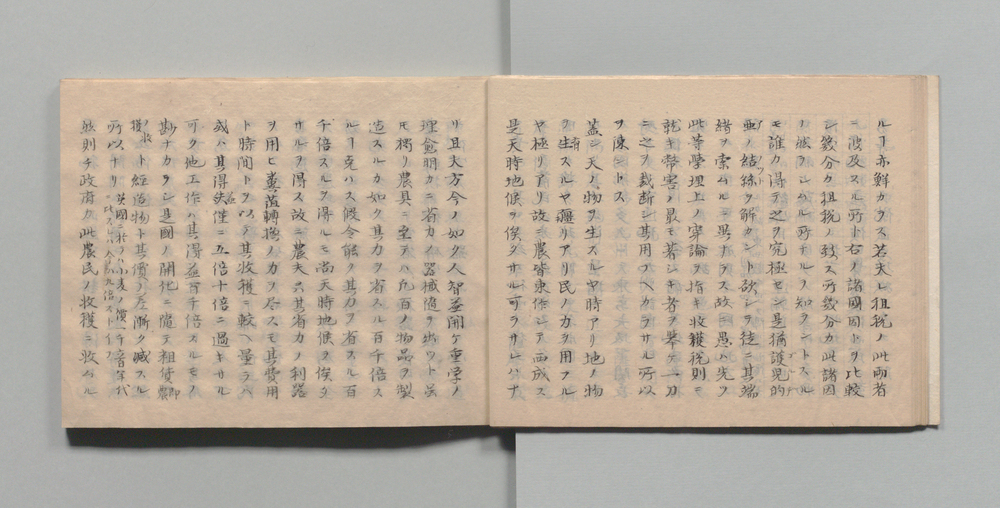 ルヿ亦鮮カラス若夫レ租税ノ此両者
ニ波及スル所ト右ノ諸國因トヲ比較
シ幾分カ租税ノ致ス所幾分カ此諸因
ノ然ラシムル所ナルヲ知ラントスル
モ誰カ得テ之ヲ究極セン是猶護見的
亜ノ結絲ヲ解カント欲シテ徒ニ其端
緒ヲ索ムルニ異ナラス故ニ愚ハ先ツ
此等學理上ノ寧論ヲ指キ收獲税則ニ
就キ幣害ノ最モ著シキ者ヲ擧ケ一刀
ニ之ヲ裁断シ其用フヘカラサル所以
ヲ陳ントス
蓋シ天ノ物ヲ生スルヤ時アリ地ノ物
ヲ生スルヤ疆リアリ民ノ力ヲ用フル
ヤ極リアリ故ニ農皆東作シテ而成ス
是天時地候ヲ俟タサル可ラサレハナ
リ且夫方今ノ如ク人智並開ケ重学ノ
理愈明カニ省力ノ器械隨テ出ツト虽
モ獨リ農具ニ至テハ凡百ノ物品ヲ製
造スルカ如ク其力ヲ省スル百千倍ス
ルヿ克ハス假令能ク其力ヲ省スル百
千倍スルヲ得ルモ尚天時地候ヲ俟タ
サルヲ得ス故ニ農夫只其省力ノ利器
ヲ用ヒ糞菑轉換ノ力ヲ尽スモ其費用
ト時間トヲ以テ其收穫ニ較ヘ量ラヘ
或ハ其得失僅ニ五倍十倍ニ過キサル
可ク地工作ハ其得益百千倍スルモノ
尠ナカラシ是國ノ開化ニ隨テ租賃
ト經済物ト其價ノ差漸ク減スル
所以ナリ
然則チ政府カ此農民ノ收穫ニ收ヘル